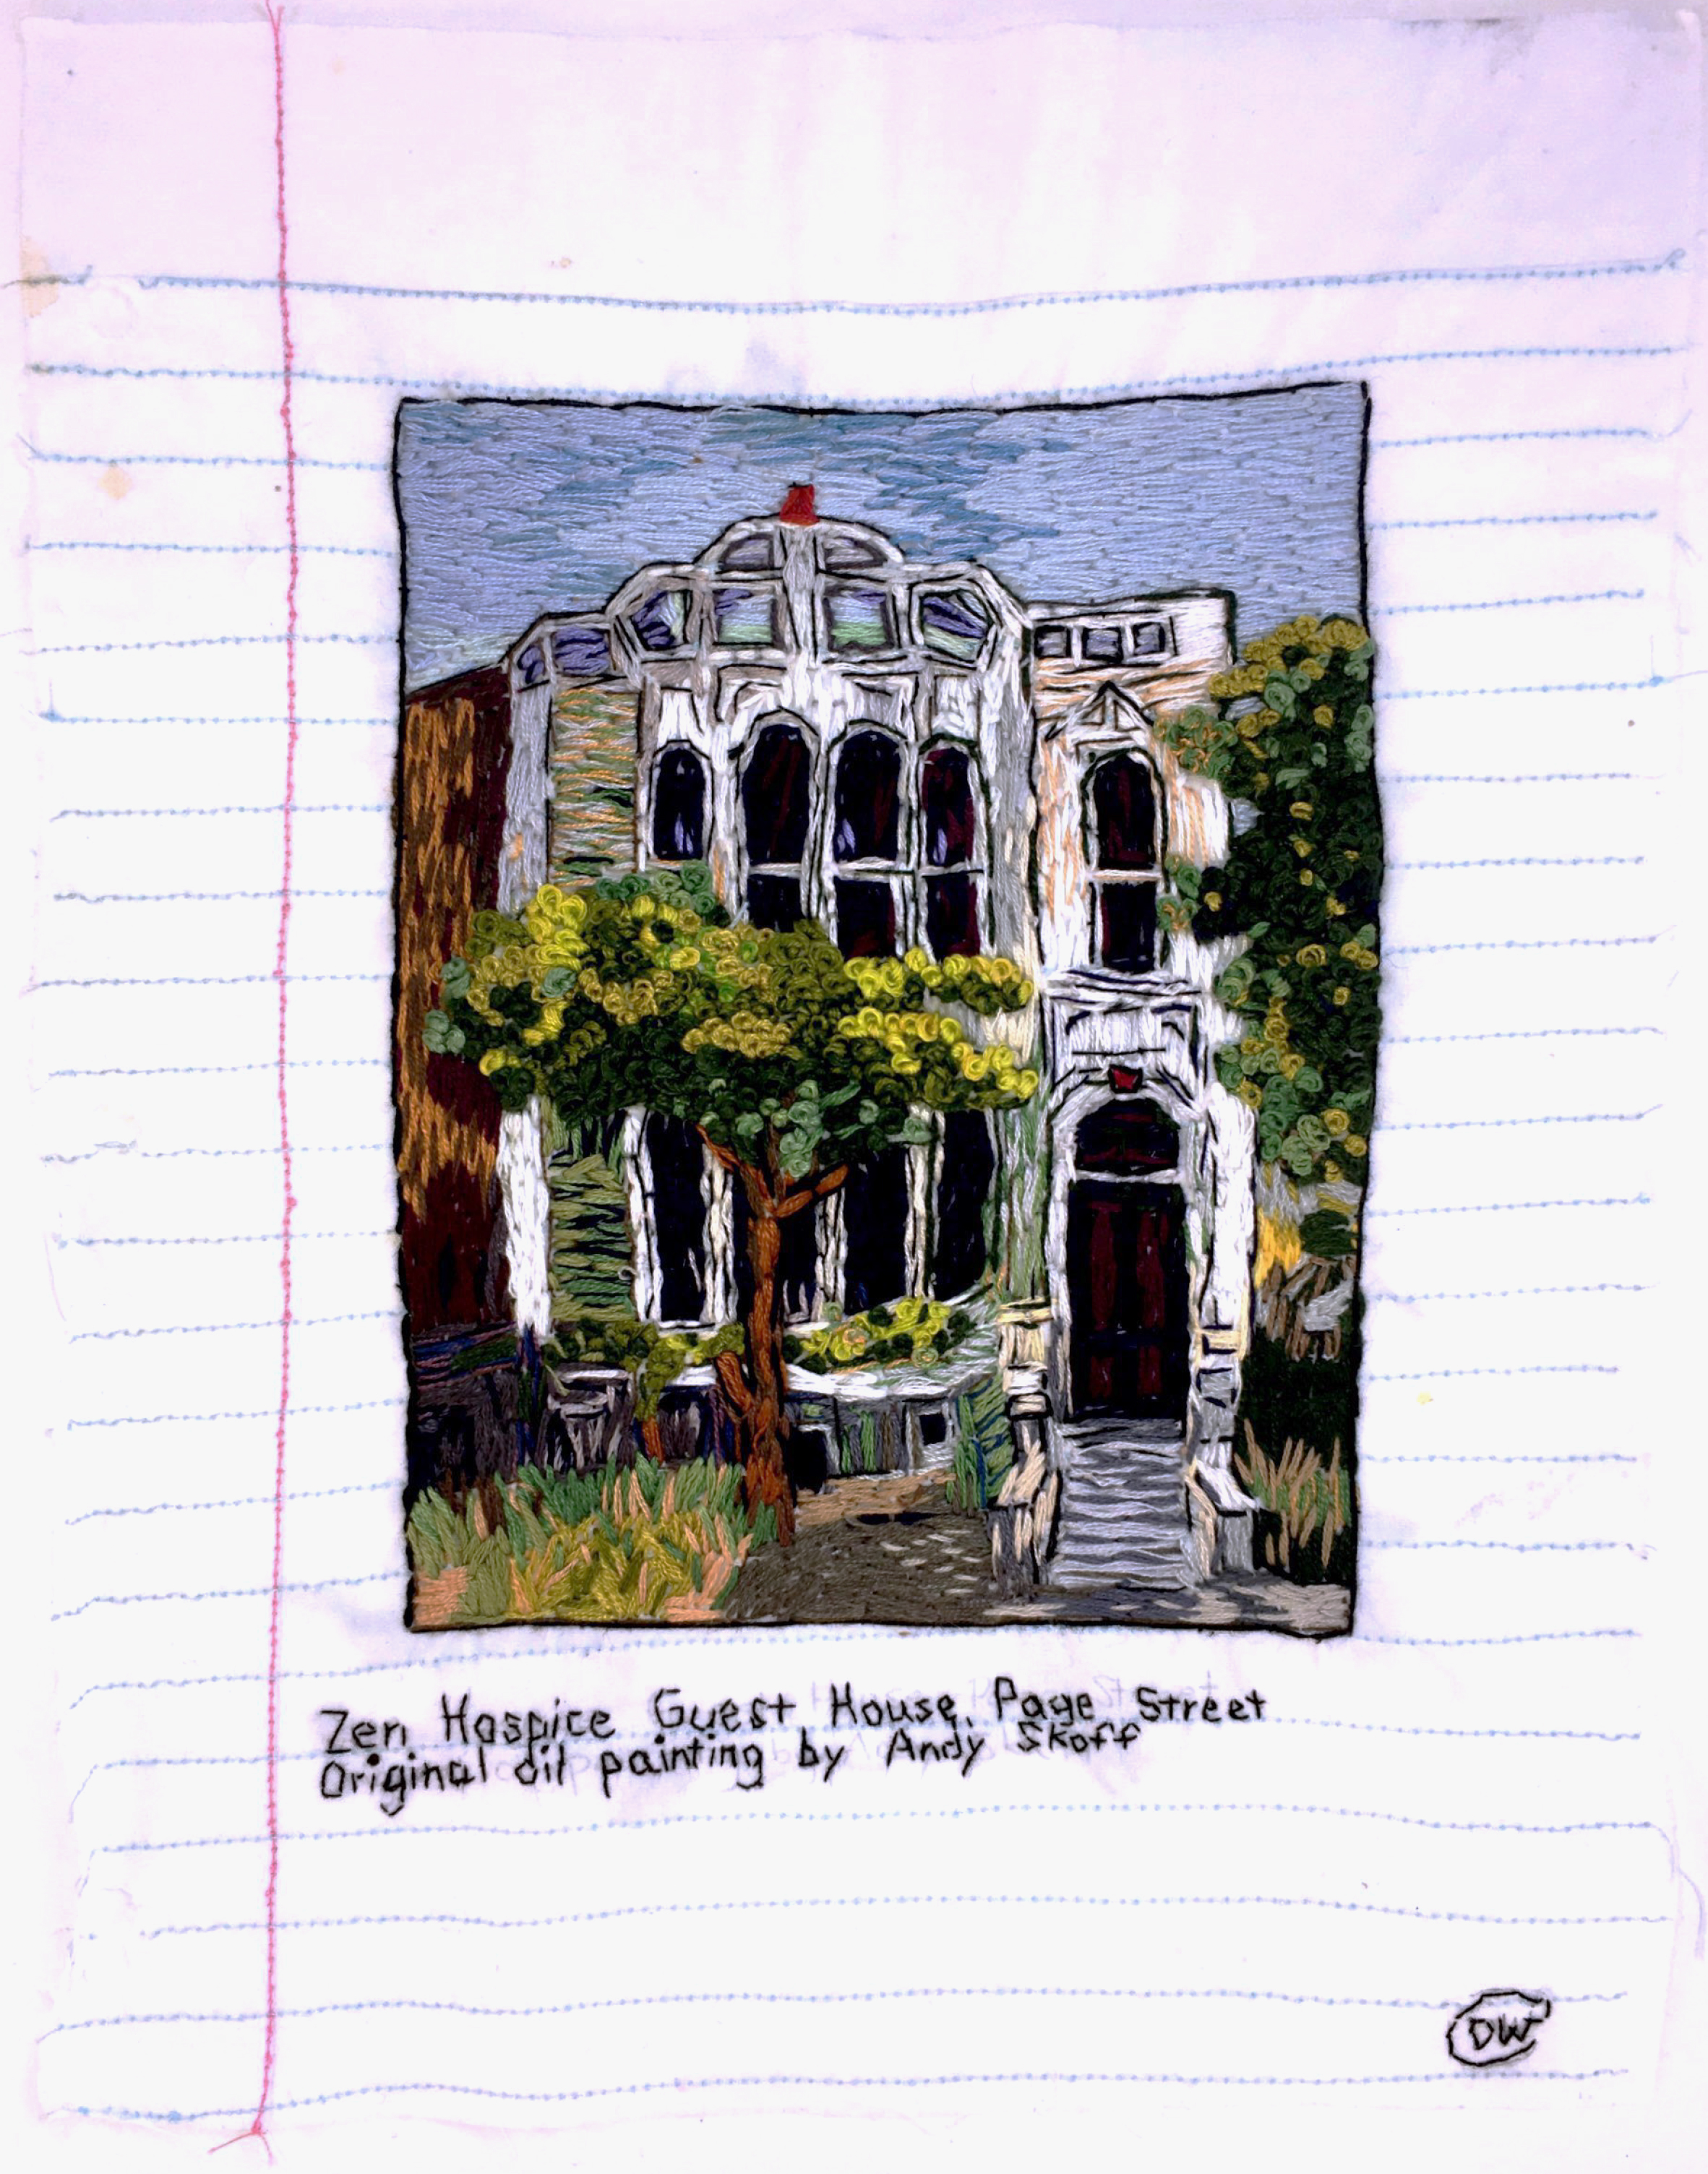 Zen Hospice Guest House, Page Street
Original oil painting by Andy Skoff
DW